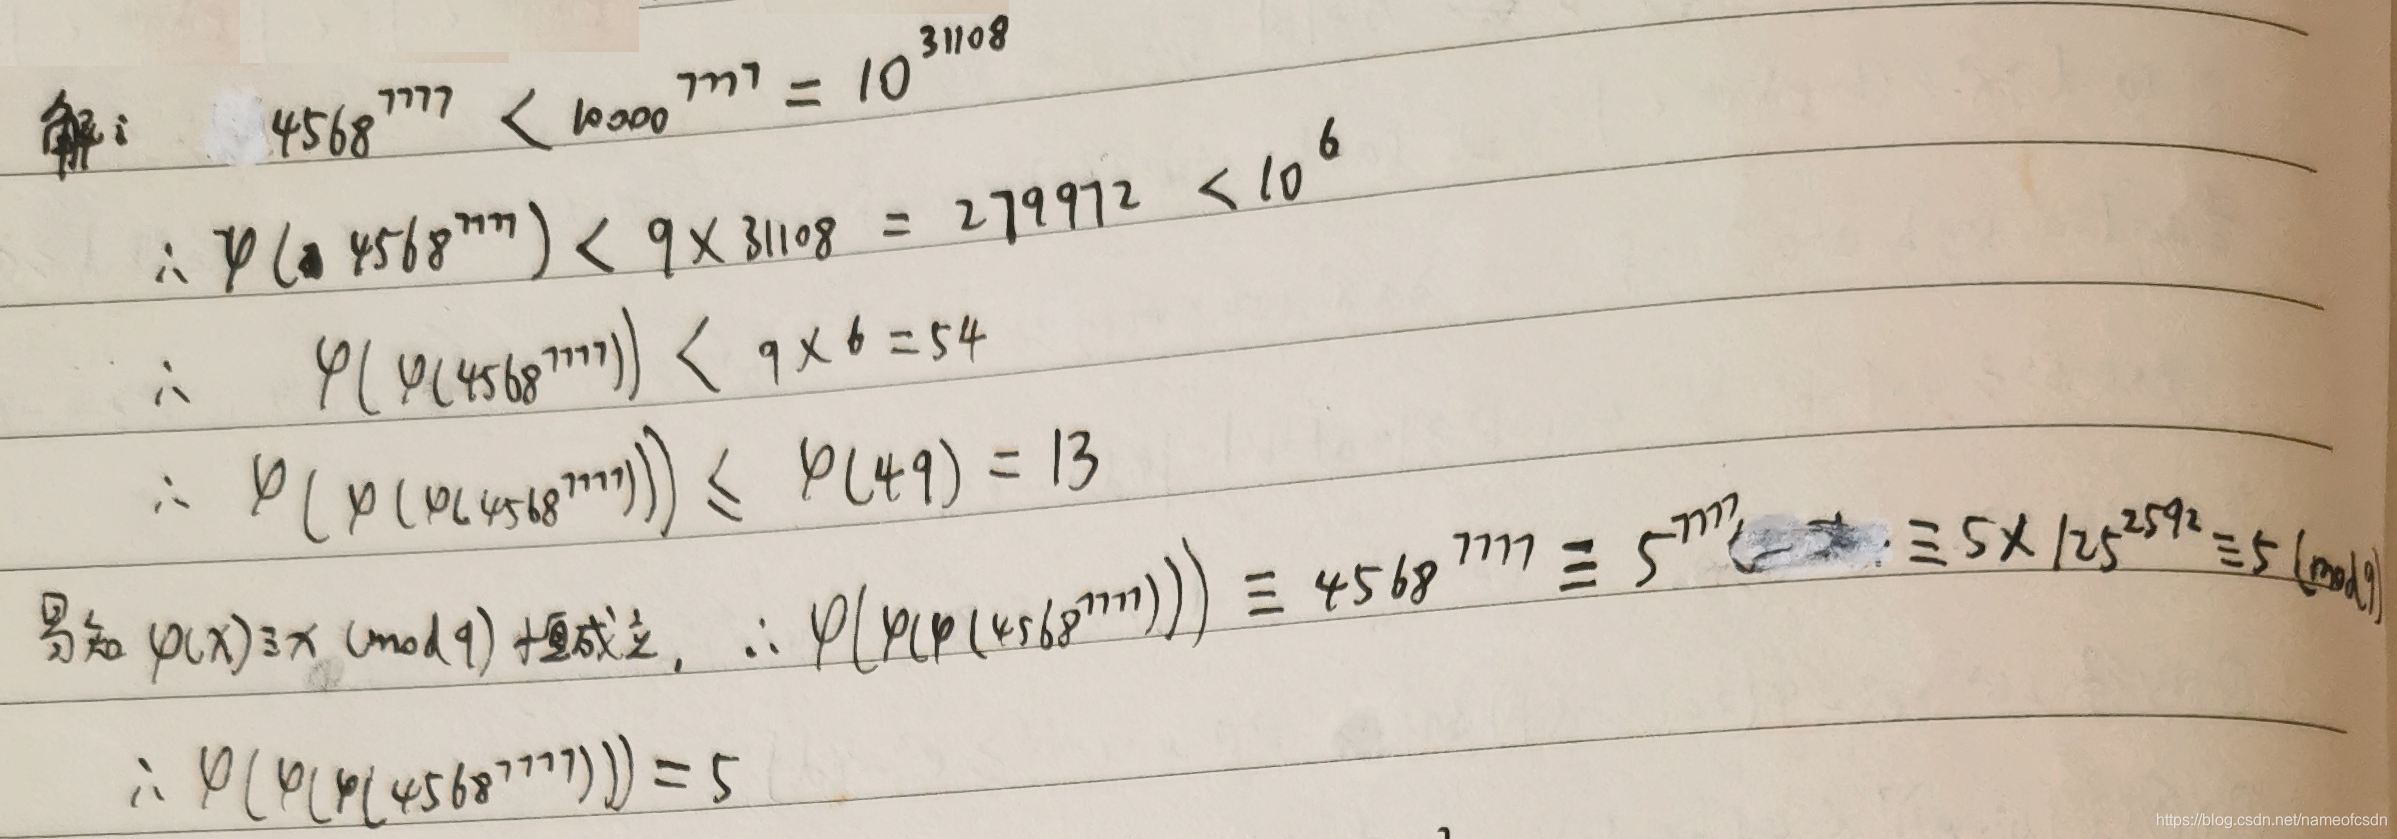 解: 4568^7777 < 10000^7777 = 10^31108
∴ φ(4568^7777) < 9×31108 = 279972 < 10^6
∴ φ(φ(4568^7777)) < 9×6 = 54
∴ φ(φ(φ(4568^7777))) ≤ φ(49) = 13
易知 φ(x)≡x (mod 9) 恒成立, ∴ φ(φ(φ(4568^7777))) ≡ 4568^7777 ≡ 5^7777 ≡ 5×125^2592 ≡ 5 (mod 9)
∴ φ(φ(φ(4568^7777))) = 5
https://blog.csdn.net/nameofcsdn